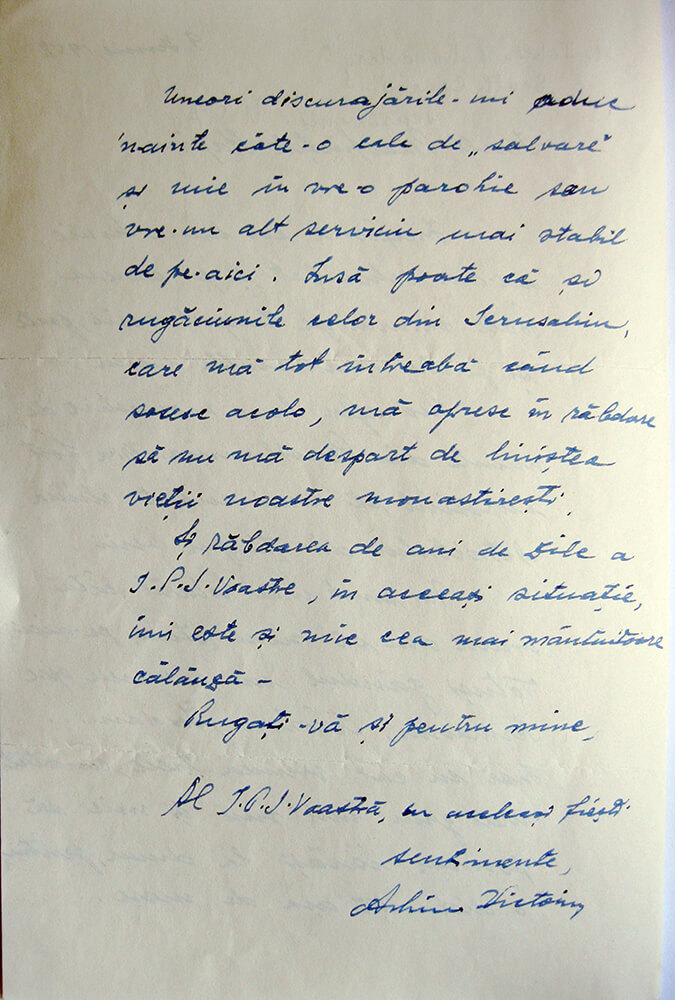 Uneori discurajările-mi aduc
'nainte câte-o cale de „salvare”
și mie în vre-o parohie sau
vre-un alt serviciu mai stabil
de pe-aici. Însă poate că și
rugăciunile celor din Ierusalim,
care mă tot întreabă când
sosesc acolo, mă opresc în răbdare
să nu mă despart de liniștea
vieții noastre monastirești.
Și răbdarea de ani de zile a
I.P.S. Voastre, în aceeași situație,
îmi este și mie cea mai mântuitoare
călăuză –
Rugați-vă și pentru mine,
Al I.P.S. Voastră, cu aceleași fiești
sentimente,
Arhim. Victorin